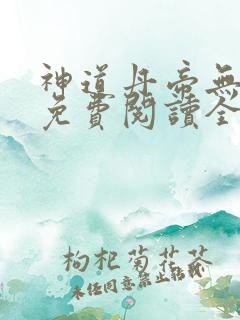 神道丹帝無
免費閱讀全
枸杞菊花茶
未經同意禁止轉傳